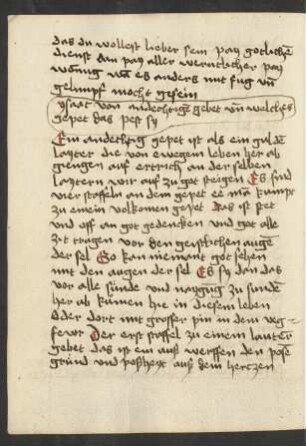 das du wollest lieber sein pey gotlichem
dienst dan pey aller werntlicher pey
wonung wa es anders mit fug vn
gelimpf mocht gesein
ysaac von andechtigem gebet vn welches
gepet das pest sy
Ein andechtig gepet ist als ein gulden
layter die von ewigem leben her ab
giengen auf ertrich an der selben
laytern wir auf zu got steigen Es sind
vier staffeln an dem gepet ee man kumpt
zu einem volkomen gepet Das ist stet
und oft an got gedencken und got alle
zit tragen vor den geistlichen augen
der sel So kan niemant got sehen
mit den augen der sel Es sy dan das
vor alle sünde und naygung zu sunden
her ab kumen hie in disem leben
Oder dort mit grosser pin in dem veg-
fewr Der erst staffel zu einem lauter
gebet das ist ein auß werffen den posen
grund und posheyt auß dem hertzen